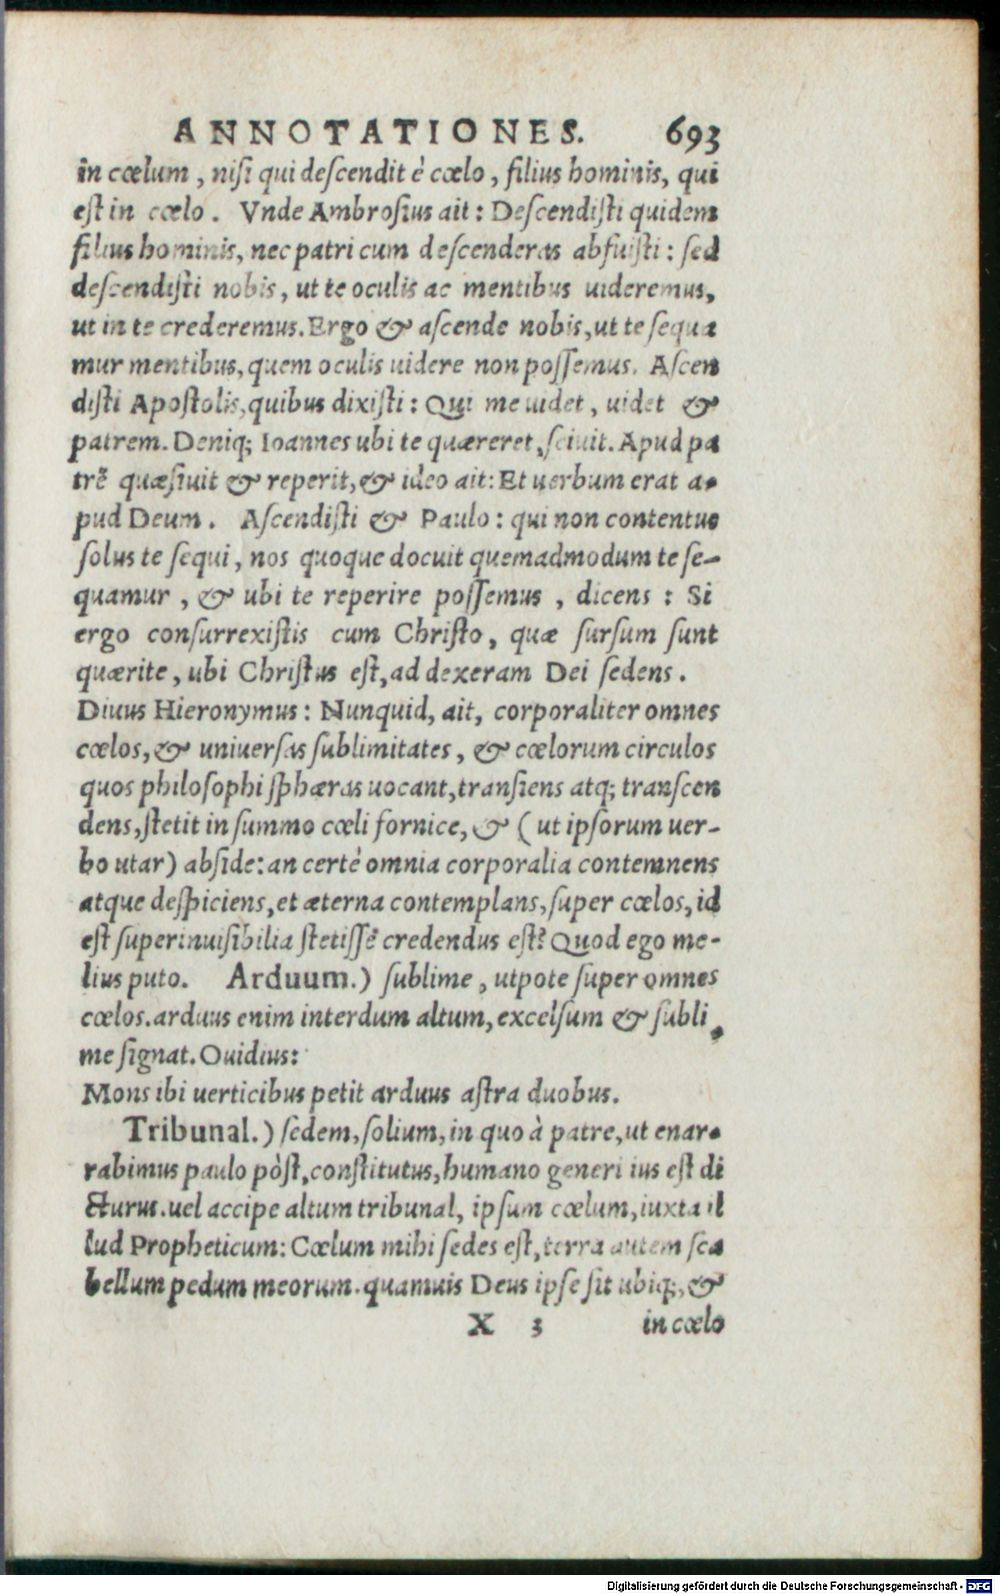 ANNOTATIONES. 693
in cœlum, nisi qui descendit è cœlo, filius hominis, qui
est in cœlo. Vnde Ambrosius ait: Descendisti quidem
filius hominis, nec patri cum descenderas abfuisti: sed
descendisti nobis, ut te oculis ac mentibus uideremus,
ut in te crederemus. Ergo & ascende nobis, ut te sequa
mur mentibus, quem oculis uidere non possemus. Ascen
disti Apostolis, quibus dixisti: Qui me uidet, uidet &
patrem. Deniq; Ioannes ubi te quæreret, sciuit. Apud pa
trẽ quæsiuit & reperit, & ideo ait: Et uerbum erat a-
pud Deum. Ascendisti & Paulo: qui non contentus
solus te sequi, nos quoque docuit quemadmodum te se-
quamur, & ubi te reperire possemus, dicens: Si
ergo consurrexistis cum Christo, quæ sursum sunt
quærite, ubi Christus est, ad dexeram Dei sedens.
Diuus Hieronymus: Nunquid, ait, corporaliter omnes
cœlos, & uniuersas sublimitates, & cœlorum circulos
quos philosophi sphæras uocant, transiens atq; transcen
dens, stetit in summo cœli fornice, & (ut ipsorum uer-
bo utar) abside: an certè omnia corporalia contemnens
atque despiciens, et æterna contemplans, super cœlos, id
est super inuisibilia stetissẽ credendus est? Quod ego me-
lius puto. Arduum.) sublime, utpote super omnes
cœlos. arduus enim interdum altum, excelsum & subli
me signat. Ouidius:
Mons ibi uerticibus petit arduus astra duobus.
Tribunal.) sedem, solium, in quo à patre, ut enar-
rabimus paulo pòst, constitutus, humano generi ius est di
cturus. uel accipe altum tribunal, ipsum cœlum, iuxta il
lud Propheticum: Cœlum mihi sedes est, terra autem sca
bellum pedum meorum. quamuis Deus ipse sit ubiq;, &
X 3 in cœlo
Digitalisierung gefördert durch die Deutsche Forschungsgemeinschaft - DFG